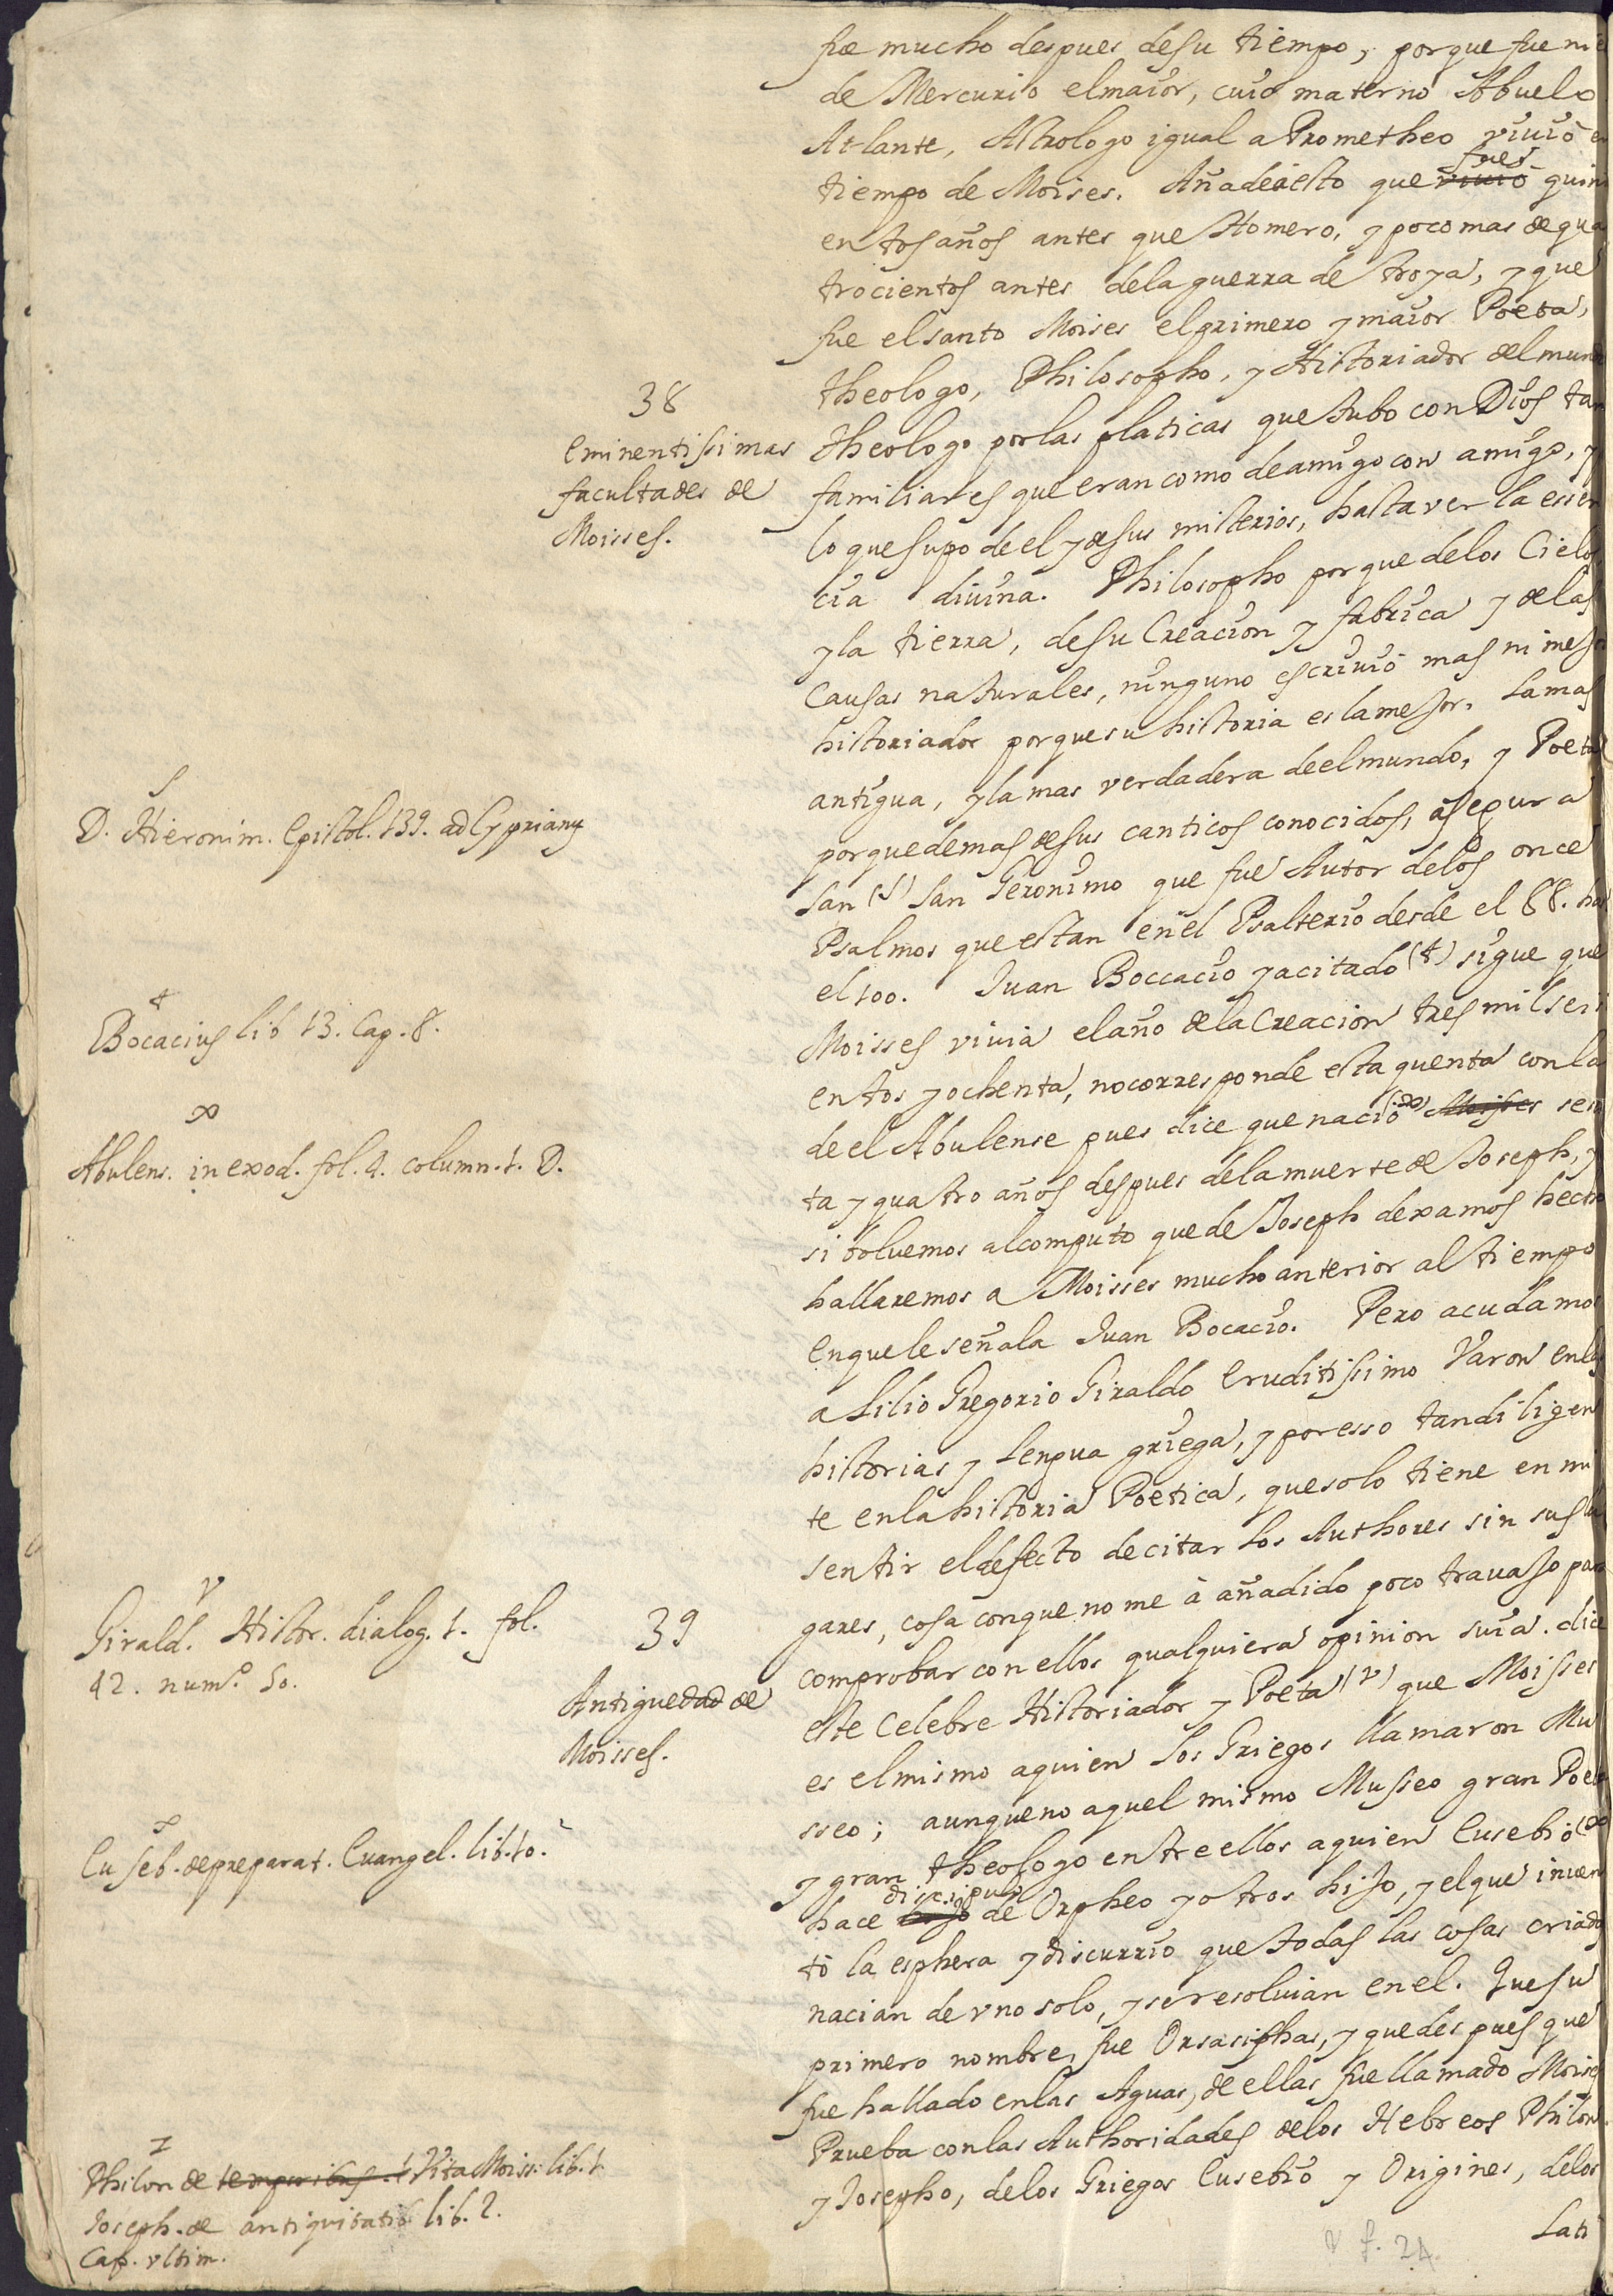 fue mucho despues de su tiempo, porque fue nie
de Mercurio el maior, cuio materno Abuelo
Atlante, Astrologo igual a Prometheo viuiò en
tiempo de Moises. Añade esto que fues quini
entos años antes que Homero, y poco mas de qua
trocientos antes de la guerra de troya, y que
fue el santo Moises el primero y maior Poeta,
38
eminentissimas
facultades de
Moisses.
theologo, Philosopho, y Historiador del mundo
theologo por las platicas que tubo con Dios tan
familiares que eran como de amigo con amigo, y
lo que supo de el y de sus misterios, hasta ver la essen
cia diuina. Philosopho porque de los Cielos
y la tierra, de su Creacion y fabrica y de las
Causas naturales, ninguno escriuiò mas ni mejor
historiador porque su historia es la mejor. La mas
antigua, y la mas verdadera de el mundo, y Poeta
S
D. Hieronim. Epistol. 139. ad Cyprianũ
porque demas de sus canticos conocidos, asegura
san (S) san Geronimo que fue Autor de los once
Psalmos que estan en el Psalterio desde el 88. has
el 100. Juan Boccacio ya citado (t) sigue que
t
Bocacius lib 13. Cap. 8.
Moisses viuia el año de la Creacion tres mil seisci
entos y ochenta, no corresponde esta quenta con la
de el Abulense pues dice que naciò (x) Moisses sesen
x
Abulens. in exod. fol. 4. column. 1. D.
ta y quatro años despues de la muerte de Joseph, y
si boluemos al computo que de Joseph dexamos hecho
hallaremos a Moisses mucho anterior al tiempo
en que le señala Juan Bocacio. Pero acudamos
a Lilio Gregorio Giraldo eruditissimo Varon en las
historias y Lengua griega, y por esso tan diligen
te en la historia Poetica, que solo tiene en mi
sentir el defecto de citar los Authores sin sus lu
gares, cosa con que no me à añadido poco trauajo para
v
Girald. Histor. dialog. 1. fol.
42. num.º 50.
39
Antiguedad de
Moisses.
comprobar con ellos qualquiera opinion suia. dice
este celebre Historiador y Poeta (v) que Moisses
es el mismo a quien los Griegos llamaron Mu
sseo; aunque no aquel mismo Musseo gran Poeta
y gran theologo entre ellos a quien Eusebio
Euseb. de preparat. Euangel. lib. 10.
hace discipulo hijo de Orpheo y otros hijo, y el que inuen
tò la esphera y discurrio que todas las cosas criadas
nacian de vno solo, y se resoluian en el. Que su
primero nombre, fue Orsarsiphas, y que despues que
fue hallado en las Aguas, de ellas fue llamado Moises
Prueba con las Authoridades de los Hebreos Philon
z
Philon de temporibus. Vita Moiss. lib. 1.
Joseph. de antiquitatib. lib. 2.
Cap. vltim.
y Josepho, de los Griegos Eusebio y Origines, de los
Lati
v f. 24.